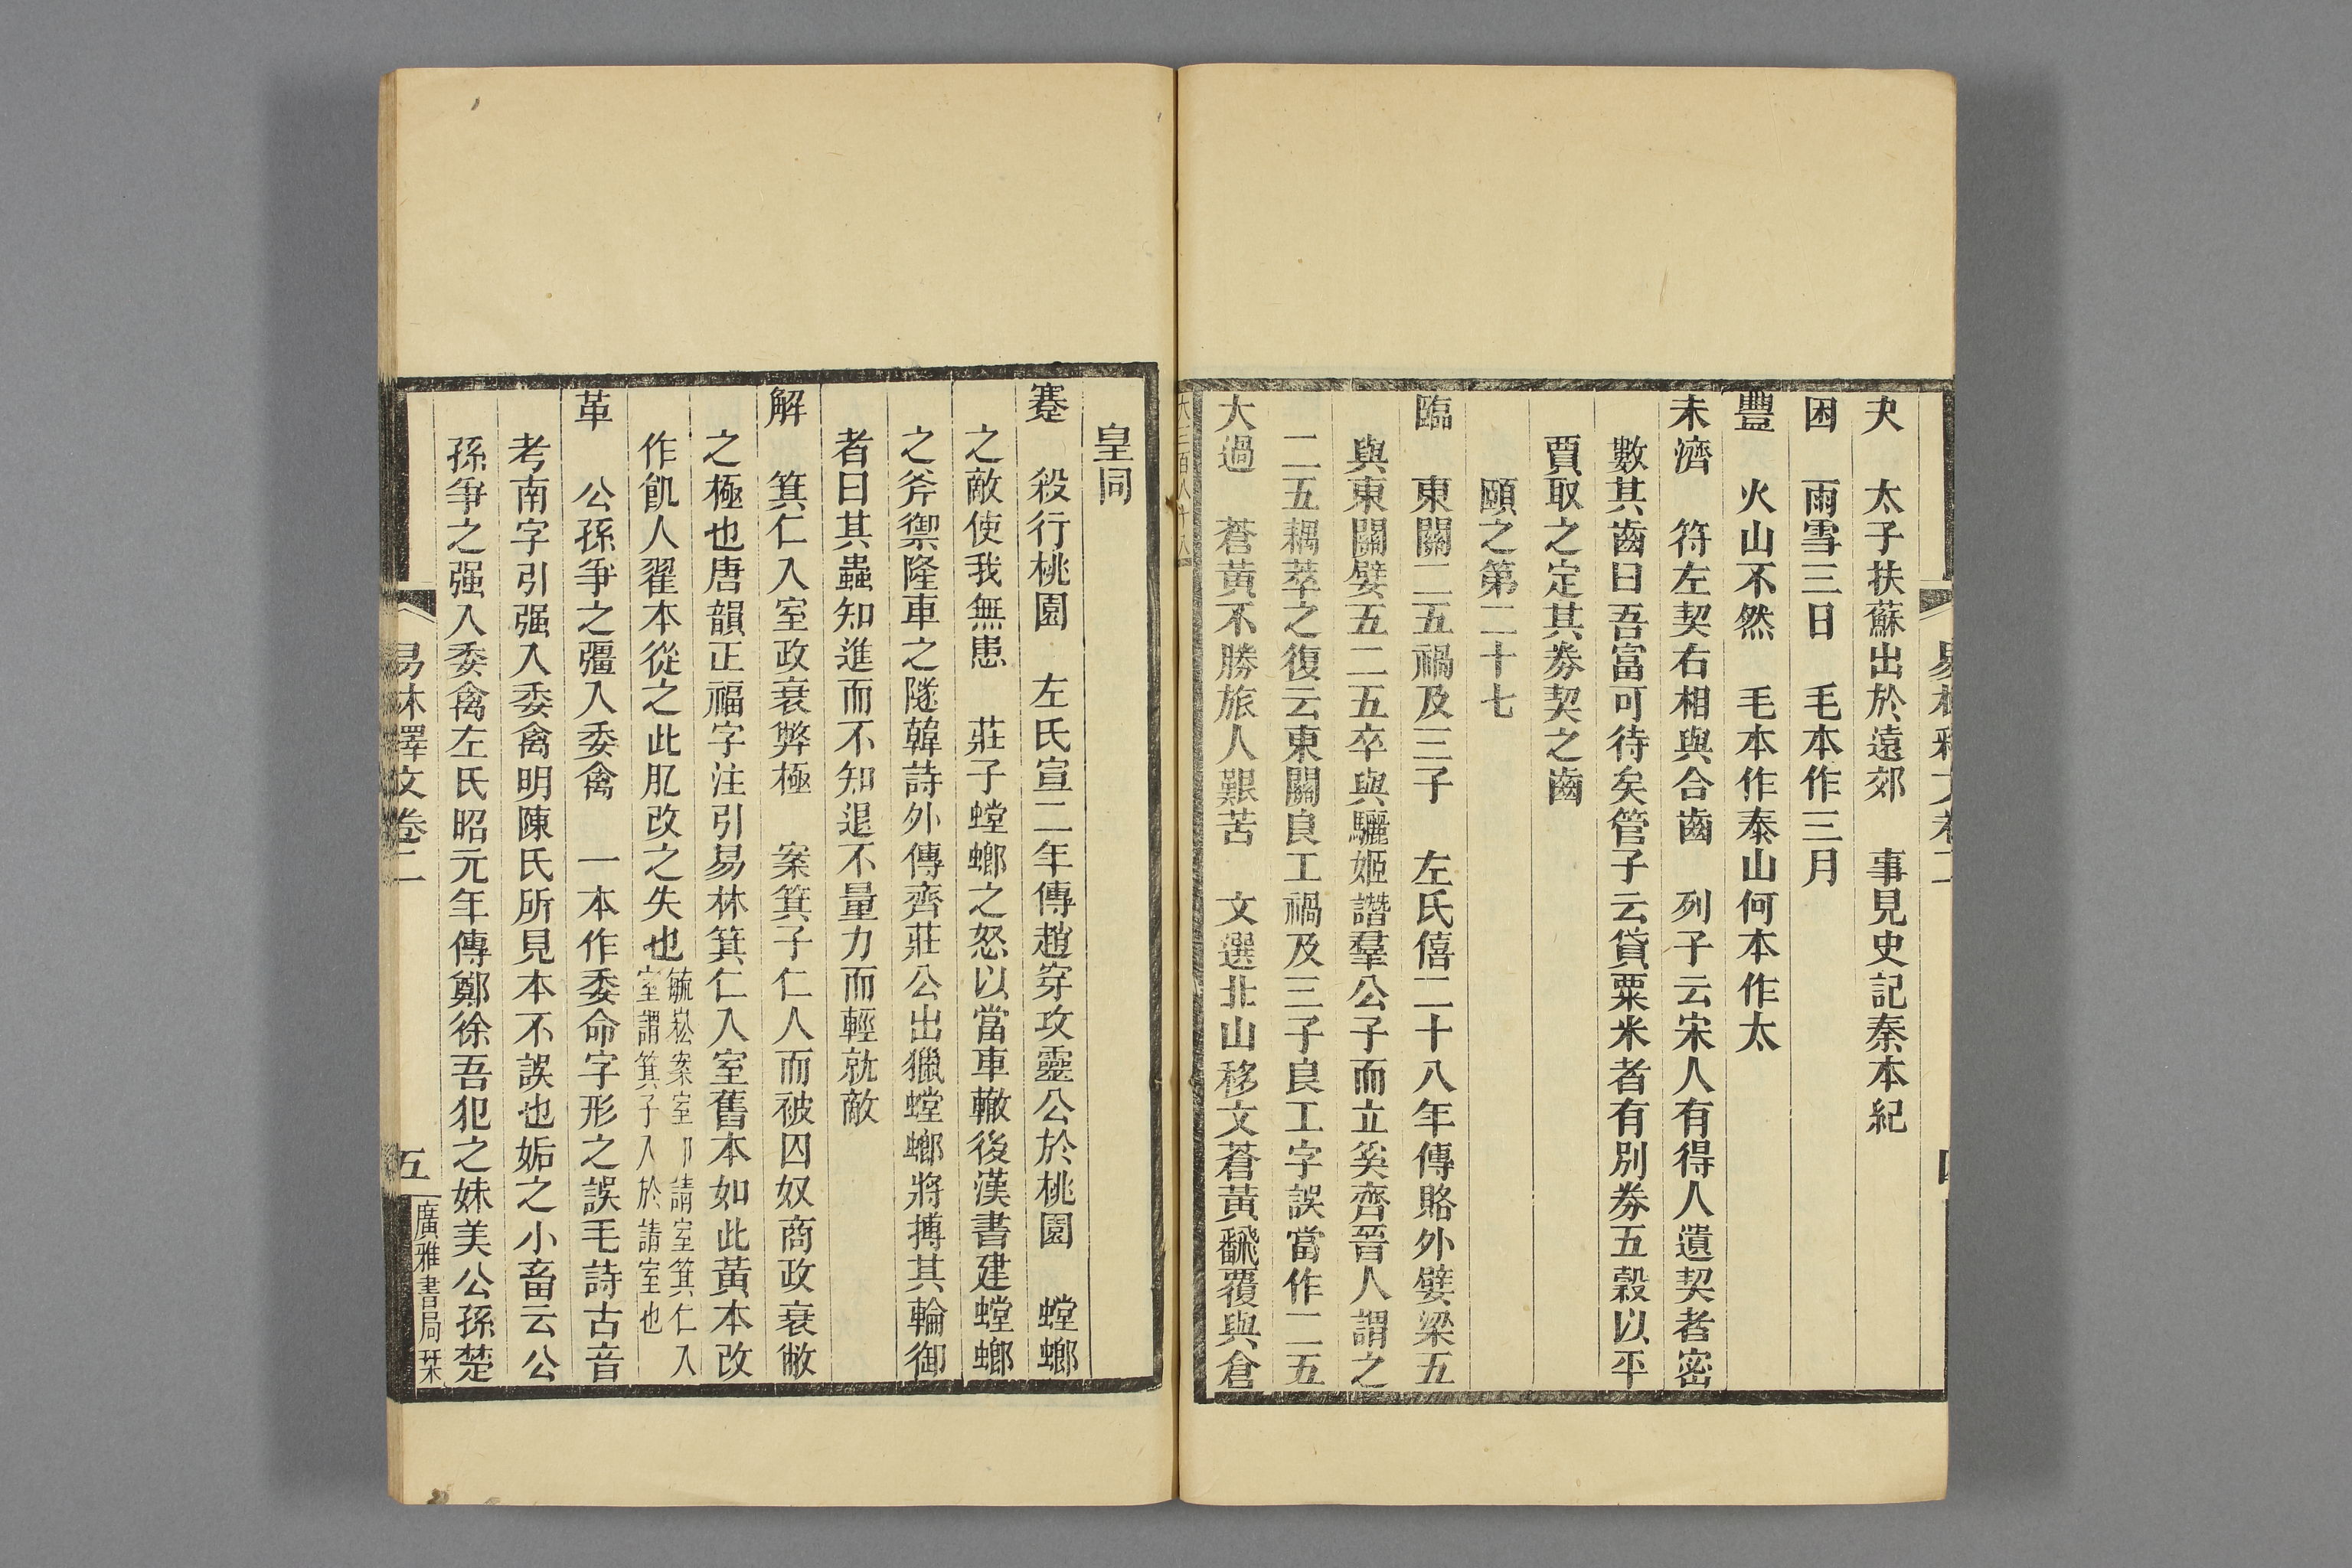 易林釋文卷二
四
夬　太子扶蘇出於遠郊　事見史記秦本紀
困　雨雪三日　毛本作三月
豐　火山不然　毛本作泰山何本作太
未濟　符左契右相與合齒　列子云宋人有得人遺契者密
數其齒曰吾富可待矣管子云貸粟米者有別券五穀以平
賈取之定其券契之齒
頤之第二十七
臨　東關二五禍及三子　左氏僖二十八年傳賂外嬖梁五
與東關嬖五二五卒與驪姬譖羣公子而立奚齊晉人謂之
二五耦萃之復云東關良工禍及三子良工字誤當作二五
大過　蒼黃不勝旅人艱苦　文選北山移文蒼黃飜覆與倉
大三百八十八
皇同
蹇　殺行桃園　左氏宣二年傳趙穿攻靈公於桃園　螳螂
之敵使我無患　莊子螳螂之怒以當車轍後漢書建螳螂
之斧禦隆車之隧韓詩外傳齊莊公出獵螳螂將搏其輪御
者曰其蟲知進而不知退不量力而輕就敵
解　箕仁入室政衰弊極　案箕子仁人而被囚奴商政衰敝
之極也唐韻正福字注引易林箕仁入室舊本如此黃本改
作飢人翟本從之此肊改之失也毓崧案室卽請室箕仁入
室謂箕子入於請室也
革　公孫爭之彊入委禽　一本作委命字形之誤毛詩古音
考南字引强入委禽明陳氏所見本不誤也姤之小畜云公
孫爭之强入委禽左氏昭元年傳鄭徐吾犯之妹美公孫楚
易林釋文卷二
五
廣雅書局栞